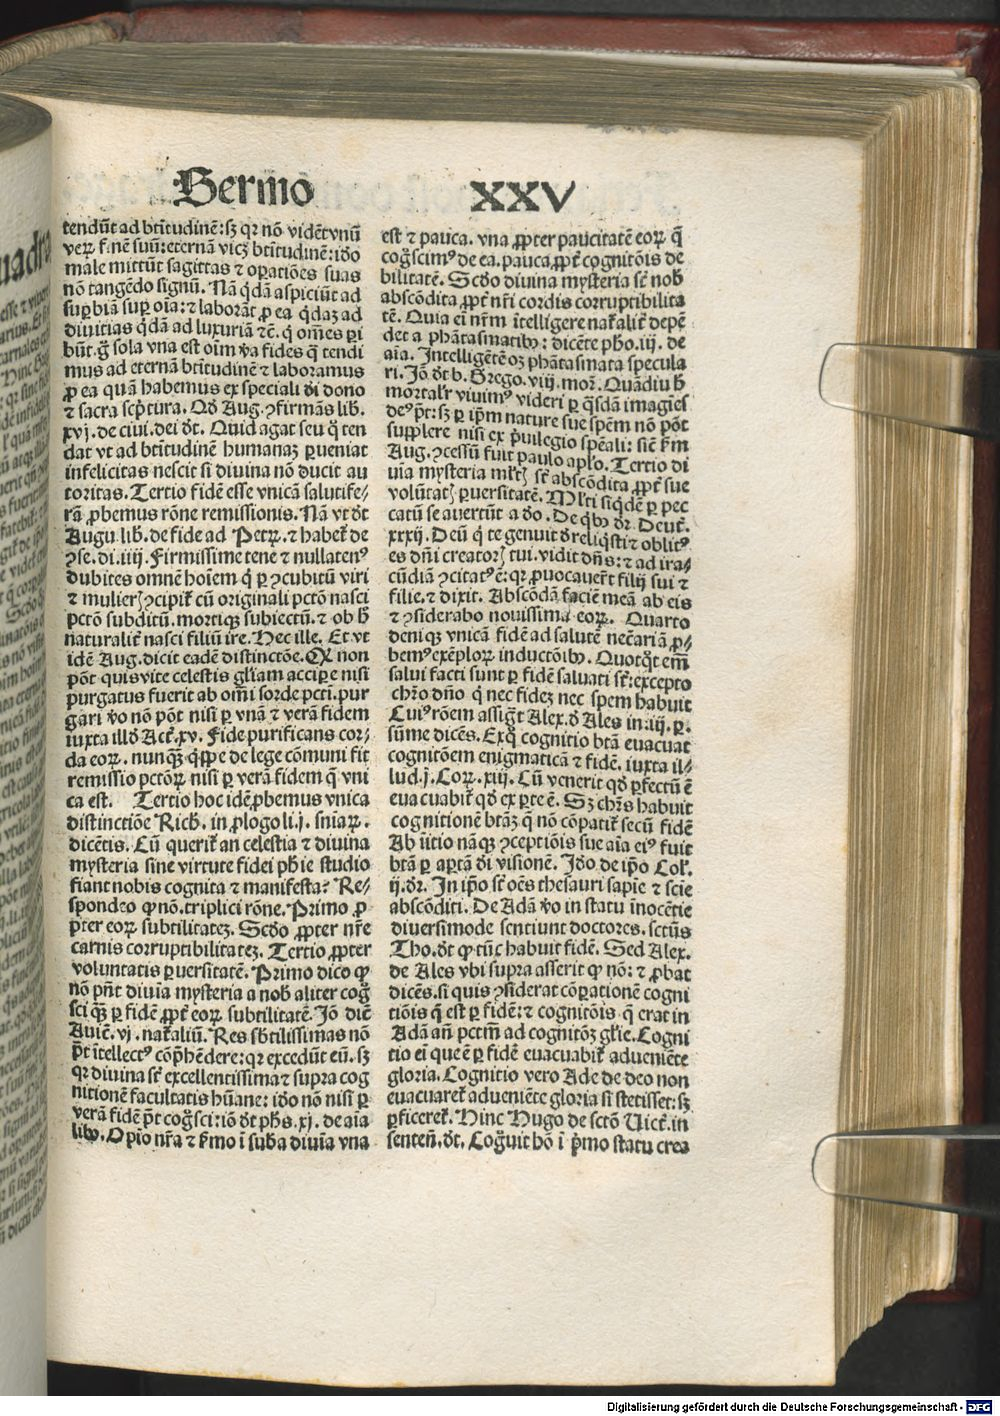 Sermo XXV
tendũt ad btĩtudinẽ: sꝫ qꝛ nõ vidẽt vnũ
veꝝ finẽ suũ: eternã vicꝫ btĩtudinẽ: iõo
male mittũt sagittas ⁊ oꝑatiões suas
nõ tangẽdo signũ. Nã qͥdã aspiciũt ad
suꝑbiã suꝑ oĩa: ⁊ laborãt ꝓ ea qͥdaꝫ ad
diuitias qͥdã ad luxuriã ⁊c̃. q̇ om̃es ꝑi
bũt. g̃ sola vna est oĩm ꝟa fides q̃ tendi
mus ad eternã btĩtudinẽ ⁊ laboramus
ꝓ ea quã habemus ex speciali dĩ dono
⁊ sacra scp̃tura. Qđ Aug. ꝯfirmãs lib.
xvj. de ciui. dei d̃t. Quid agat seu q̊ ten
dat vt ad btĩtudinẽ humanaꝫ ꝑueniat
infelicitas nescit si diuina nõ ducit au
toritas. Tertio fidẽ esse vnicã salutife⸗
rã ꝓbemus rõne remissionis. Nã vt d̃t
Augu lib. de fide ad Petꝝ. ⁊ habet̃ de
ꝯse. di. iiij. Firmissime tene ⁊ nullatenꝰ
dubites omnẽ hoĩem q̇ ꝑ ꝯcubitũ viri
⁊ mulieꝝ ꝯcipit̃ cũ originali pctõ nasci
pctõ subditũ. mortiqꝫ subiectũ. ⁊ ob h̃
naturalit̃ nasci filiũ ire. Hec ille. Et vt
idẽ Aug. dicit eadẽ distinctõe. Qꝛ non
põt quis vite celestis gl̃iam acciꝑe nisi
purgatus fuerit ab om̃i sorde pcti. pur
gari ꝟo nõ põt nisi ꝑ vnã ⁊ verã fidem
iuxta illđ Act̃. xv. Fide purificans cor⸗
da eoꝝ. nunqͣꝫ qͥppe de lege cõmuni fit
remissio pctõꝝ nisi ꝑ verã fidem q̃ vni
ca est. Tertio hoc idẽ ꝓbemus vnica
distinctiõe Rich. in ꝓlogo li. j. sniaꝝ.
dicẽtis. Cũ querit̃ an celestia ⁊ diuina
mysteria sine virtute fidei ph̃ie studio
fiant nobis cognita ⁊ manifesta? Re⸗
spondeo ꝙ nõ. triplici rõne. Primo ꝓ
pter eoꝝ subtilitateꝫ. Scđo ꝓpter nr̃e
carnis corruptibilitateꝫ. Tertio ꝓpter
voluntatis ꝑuersitatẽ. Primo dico ꝙ
nõ pñt diuĩa mysteria a nob̃ aliter cog̃
sci qͣꝫ ꝑ fidẽ ꝓpt̃ eoꝝ subtilitatẽ. Jõ dic̃
Auic̃. vj. nat̃aliũ. Res sb̃tilissimas nõ
p̃t ĩtellectꝰ cõp̃hẽdere: qꝛ excedũt eũ. sꝫ
qꝛ diuina st̃ excellentissima ⁊ supra cog
nitionẽ facultatis hũane: iõo nõ nisi ꝑ
verã fidẽ p̃t cog̃sci: iõ d̃t ph̃s. xj. de aĩa
libꝰ. Opĩo nr̃a ⁊ fĩmo ĩ suba diuĩa vna
est ⁊ pauca. vna ꝓpter paucitatẽ eoꝝ q̃
cog̃scimꝰ de ea. pauca, ꝓpt̃ cognitõis de
bilitatẽ. Scđo diuina mysteria st̃ nob̃
abscõdita ꝓpt̃ nr̃i cordis corruptibilita
tẽ. Quia eĩ nr̃m ĩtelligere nat̃alit̃ depẽ
det a phãtasmatibꝰ: dicẽte pho. iij. de
aĩa. Intelligẽtẽ oꝫ phãtasmata specula
ri. Jõ d̃t b. Grego. viij. mor̃. Quãdiu h̃
mortalr̃ viuimꝰ videri ꝑ qͣsdã imagĩes
deꝰ p̃t: sꝫ ꝑ ip̃m nature sue spẽm nõ põt
supplere nisi ex p̃uilegio spẽali: sic̃ fm̃
Aug. ꝯcessũ fuit paulo apl̃o. Tertio di
uĩa mysteria ml̃tꝫ st̃ abscõdita ꝓpt̃ sue
volũtatꝭ ꝑuersitatẽ. Ml̃ti siqͥdẽ ꝑ pec
catũ se auertũt a đo. De qͥbꝰ dr̃. Deut̃.
xxxij. Deũ q̇ te genuit dereliqͥsti ⁊ oblitꝰ
es dñi creatoꝝ tui. vidit dñs: ⁊ ad ira⸗
cũdiã ꝯcitatꝰ ẽ: qꝛ ꝓuocauer̃t filij sui ⁊
filie. ⁊ dixit. Abscõdã faciẽ meã ab eis
⁊ ꝯsiderabo nouissima eoꝝ. Quarto
deniqꝫ vnicã fidẽ ad salutẽ nec̃ariã ꝓ⸗
bemꝰ exẽploꝝ inductõibꝰ. Quotqͦt em̃
salui facti sunt ꝑ fidẽ saluati st̃: excepto
chr̃o dño q̇ nec fideꝫ nec spem habuit
Cuiꝰ rõem assig̃t Alex. đ Ales in. iij. ꝑ.
sũme dicẽs. Exq̊ cognitio btã euacuat
cognitõem enigmaticã ⁊ fidẽ. iuxta il⸗
lud. j. Coꝝ. xiij. Cũ venerit qđ ꝑfectũ ẽ
euacuabit̃ qđ ex ꝑte ẽ. Sꝫ chr̃s habuit
cognitionẽ btãꝫ q̃ nõ cõpatit̃ secũ fidẽ
Ab ĩitio nãqꝫ ꝯceptiõis sue aĩa eiꝰ fuit
btã ꝑ aꝑtã dĩ visionẽ. Jđo de ip̃o Col̃.
ij. dr̃. In ip̃o st̃ oẽs thesauri sapĩe ⁊ scĩe
abscõditi. De Adã ꝟo in statu ĩnocẽtie
diuersimode sentiunt doctores. sctũs
Tho. d̃t ꝙ tũc habuit fidẽ. Sed Alex.
de Ales vbi supra asserit ꝙ nõ: ⁊ ꝓbat
dicẽs. si quis ꝯsiderat cõꝑationẽ cogni
tiõis q̃ est ꝑ fidẽ: ⁊ cognitõis q̃ erat in
Adã añ pctm̃ ad cognitõꝫ gl̃ie. Cogni
tio eĩ que ẽ ꝑ fidẽ euacuabit̃ adueniẽte
gloria. Cognitio vero Ade de deo non
euacuaret̃ adueniẽte gloria si stetisset: sꝫ
ꝑficeret̃. Hinc Hugo de sctõ Uict̃. in
senteñ. d̃t. Cog̃uit hõ ĩ p̃mo statu crea
Digitalisierung gefördert durch die Deutsche Forschungsgemeinschaft - DFG